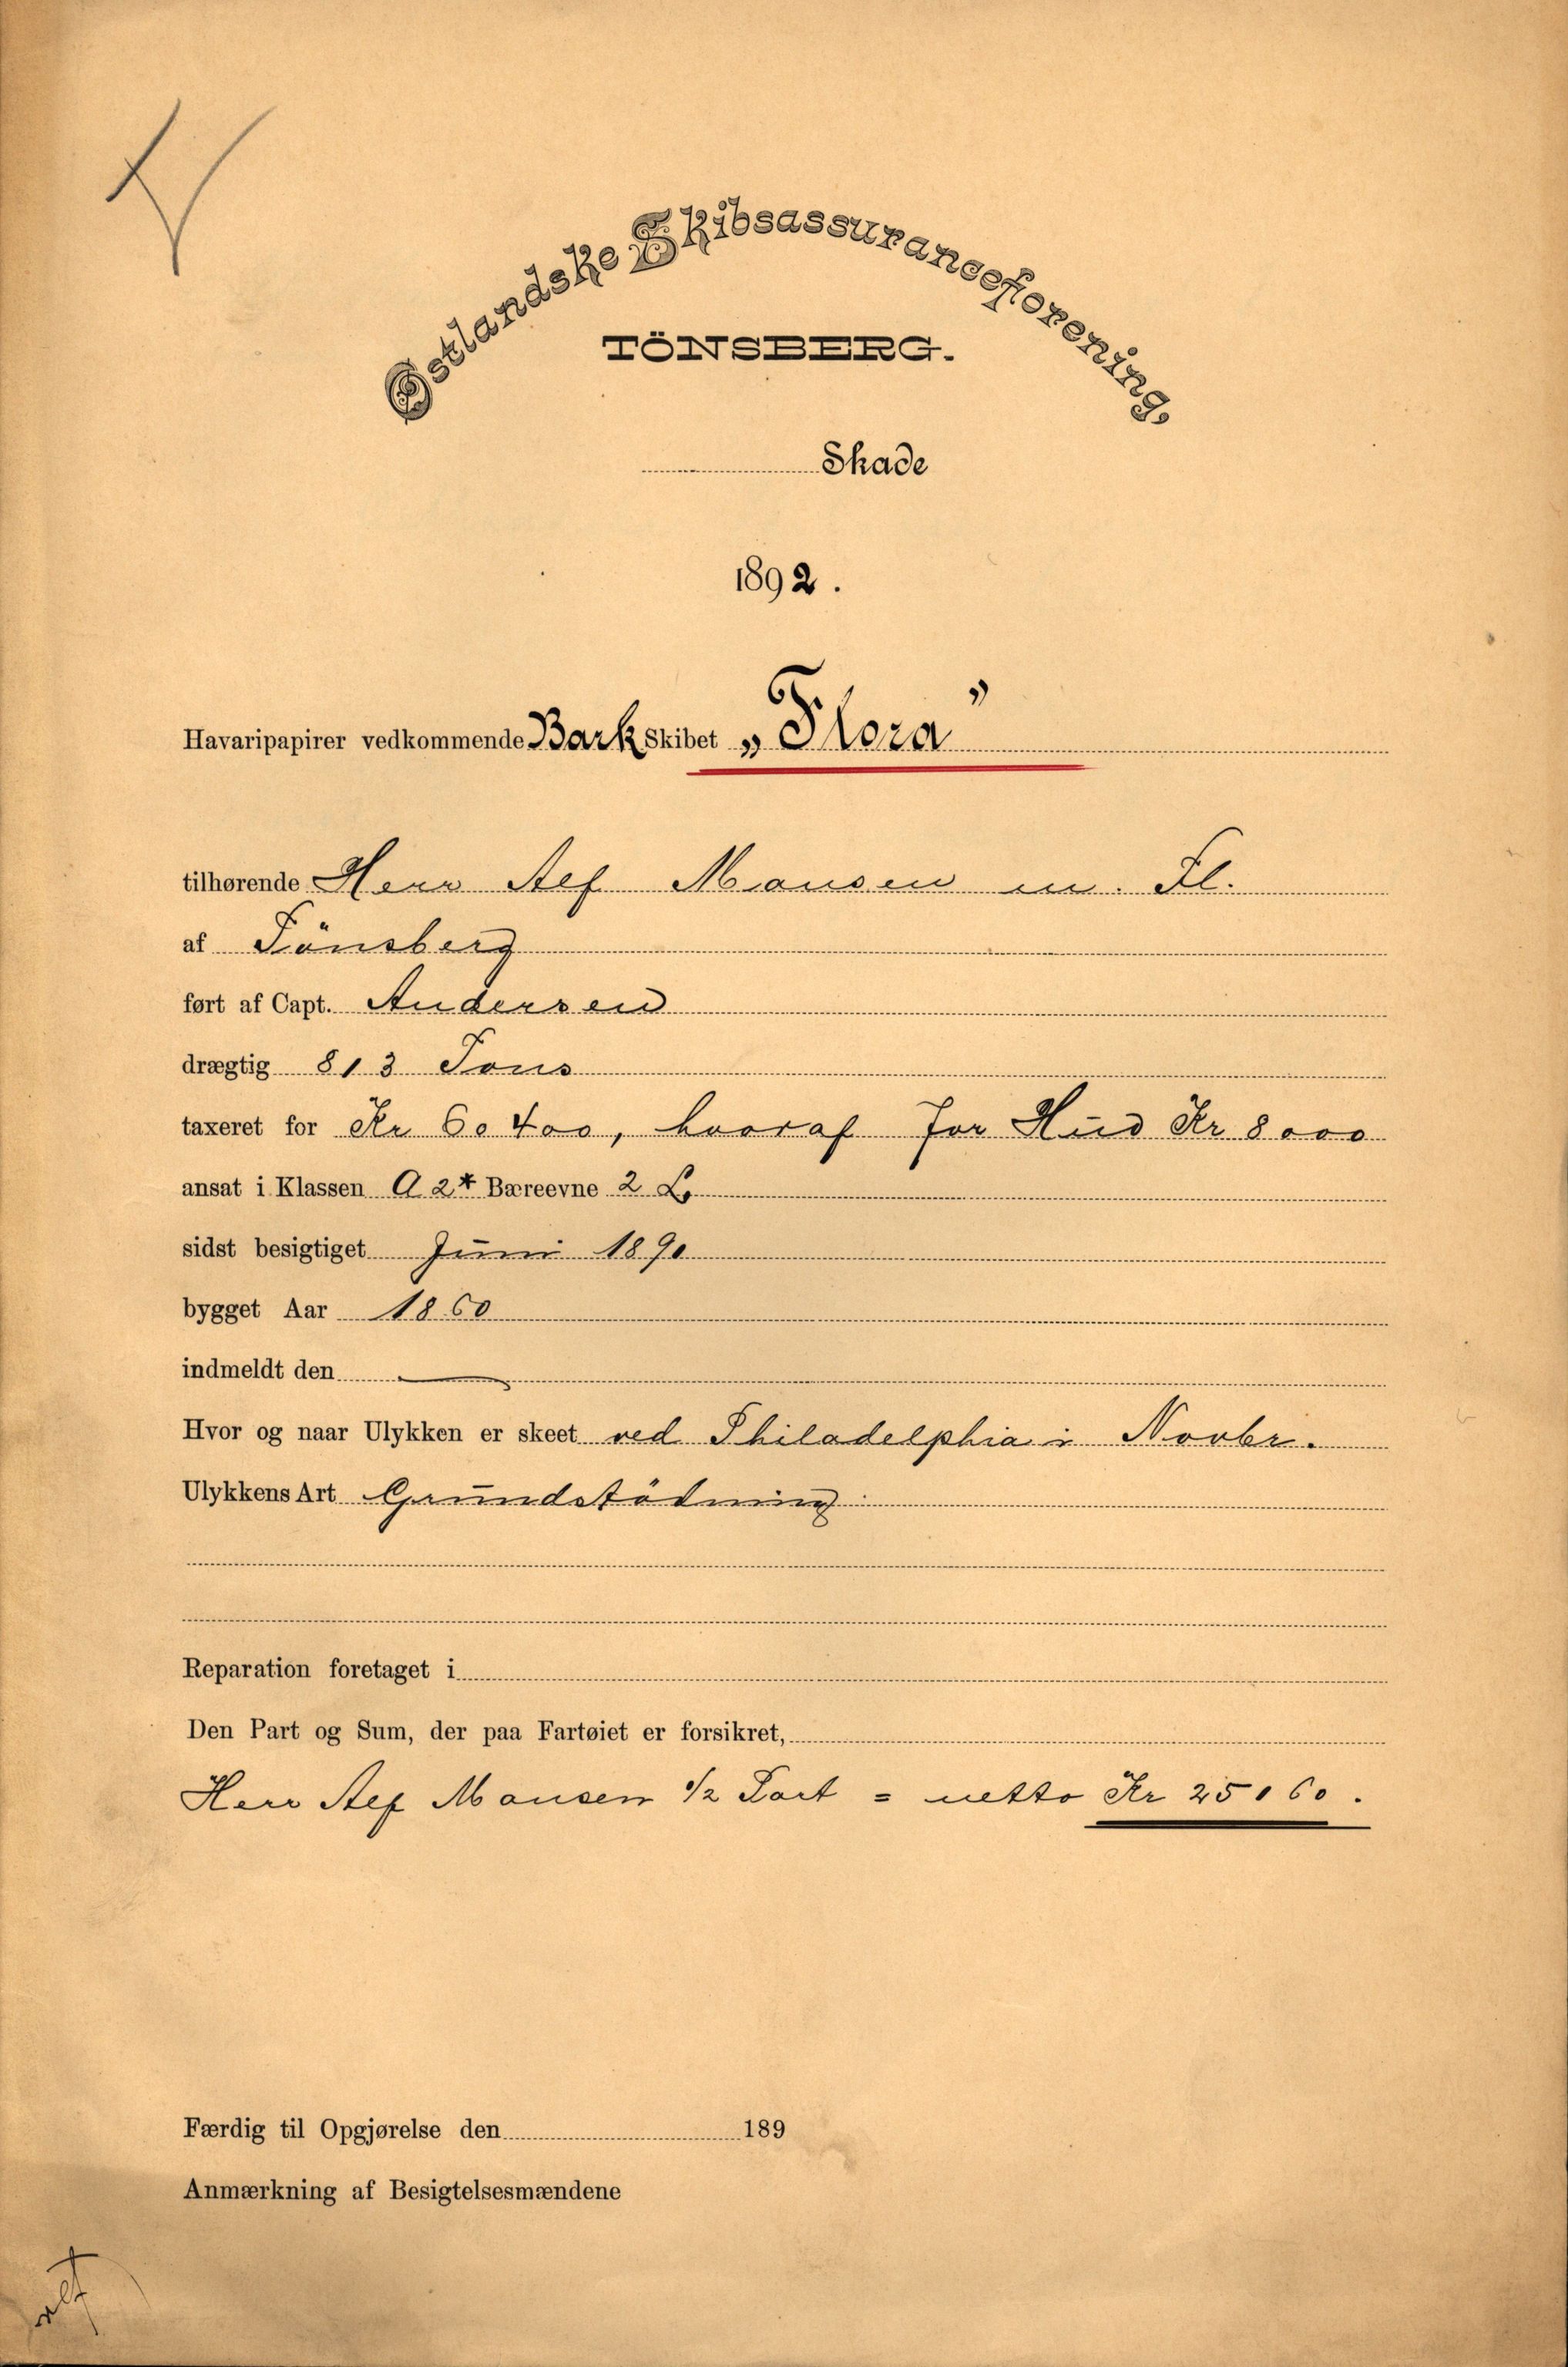 Østlandske Skibsassuranceforening,
TÖNSBERG.
Skade
1892.
Havaripapirer vedkommende Bark Skibet „Flora”
tilhørende Herr Alf Monsen m. Fl.
af Tönsberg
ført af Capt. Andersen
drægtig 813 Tons
taxeret for Kr 60400, hvoraf for Hud Kr 8000
ansat i Klassen A 2* Bæreevne 2 L.
sidst besigtiget Juni 1890
bygget Aar 1860
indmeldt den —
Hvor og naar Ulykken er skeet ved Philadelphia i Novbr.
Ulykkens Art Grundstödning
Reparation foretaget i
Den Part og Sum, der paa Fartøiet er forsikret,
Herr Alf Monsen 1/2 Part = netto Kr 25160.
Færdig til Opgjørelse den 189
Anmærkning af Besigtelsesmændene